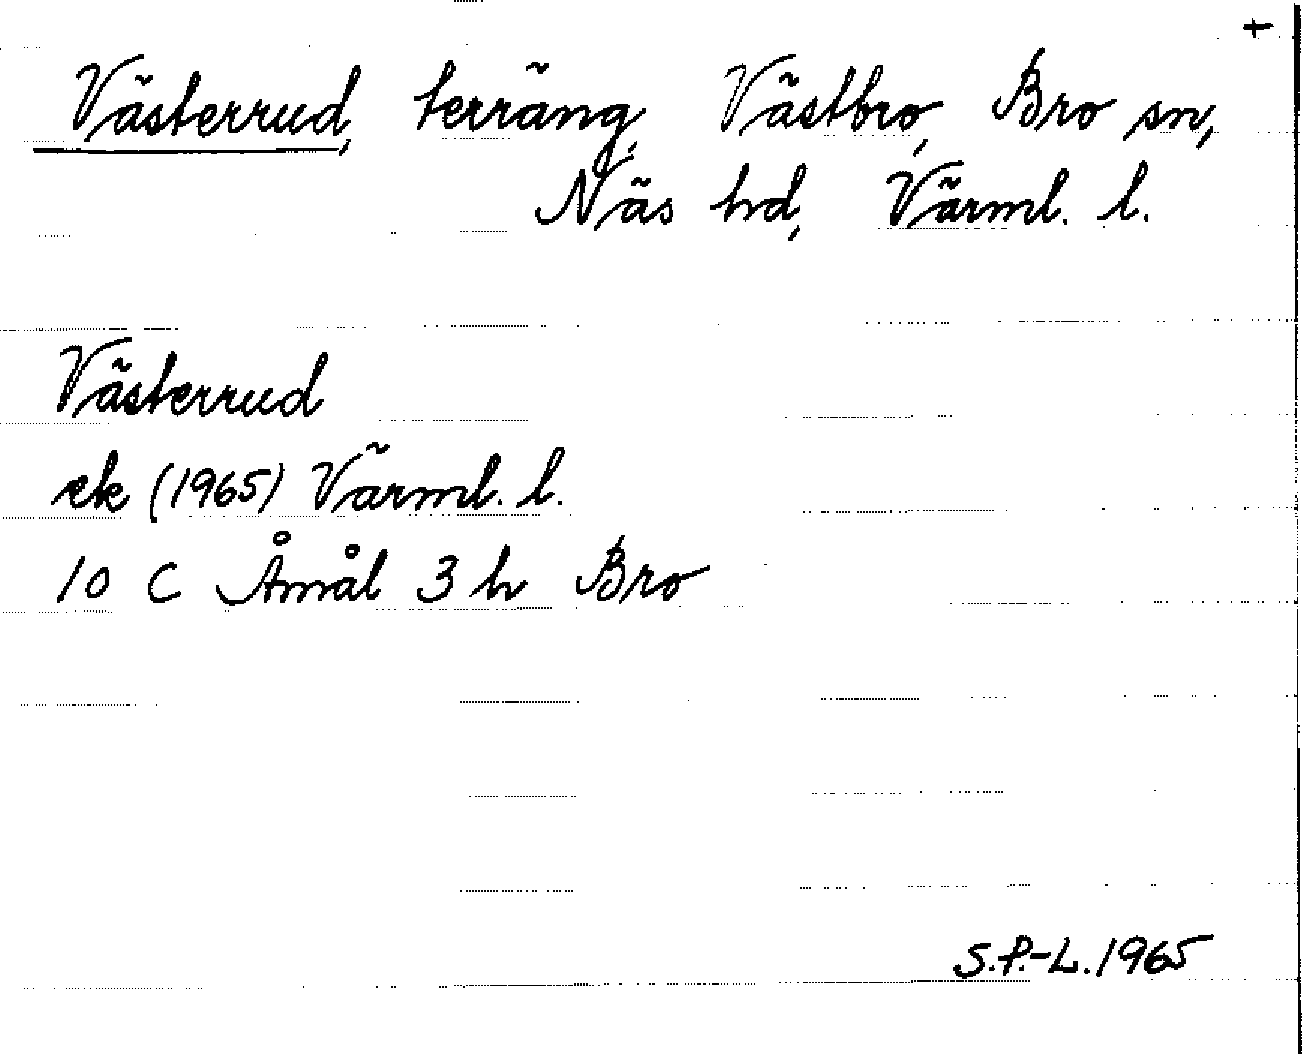 +
Västerrud, terräng, Västbro, Bro sn,
Näs hd, Värml. l.
Västerrud
ek (1965) Värml. l.
10 C Åmål 3 h Bro
S.P.-L. 1965